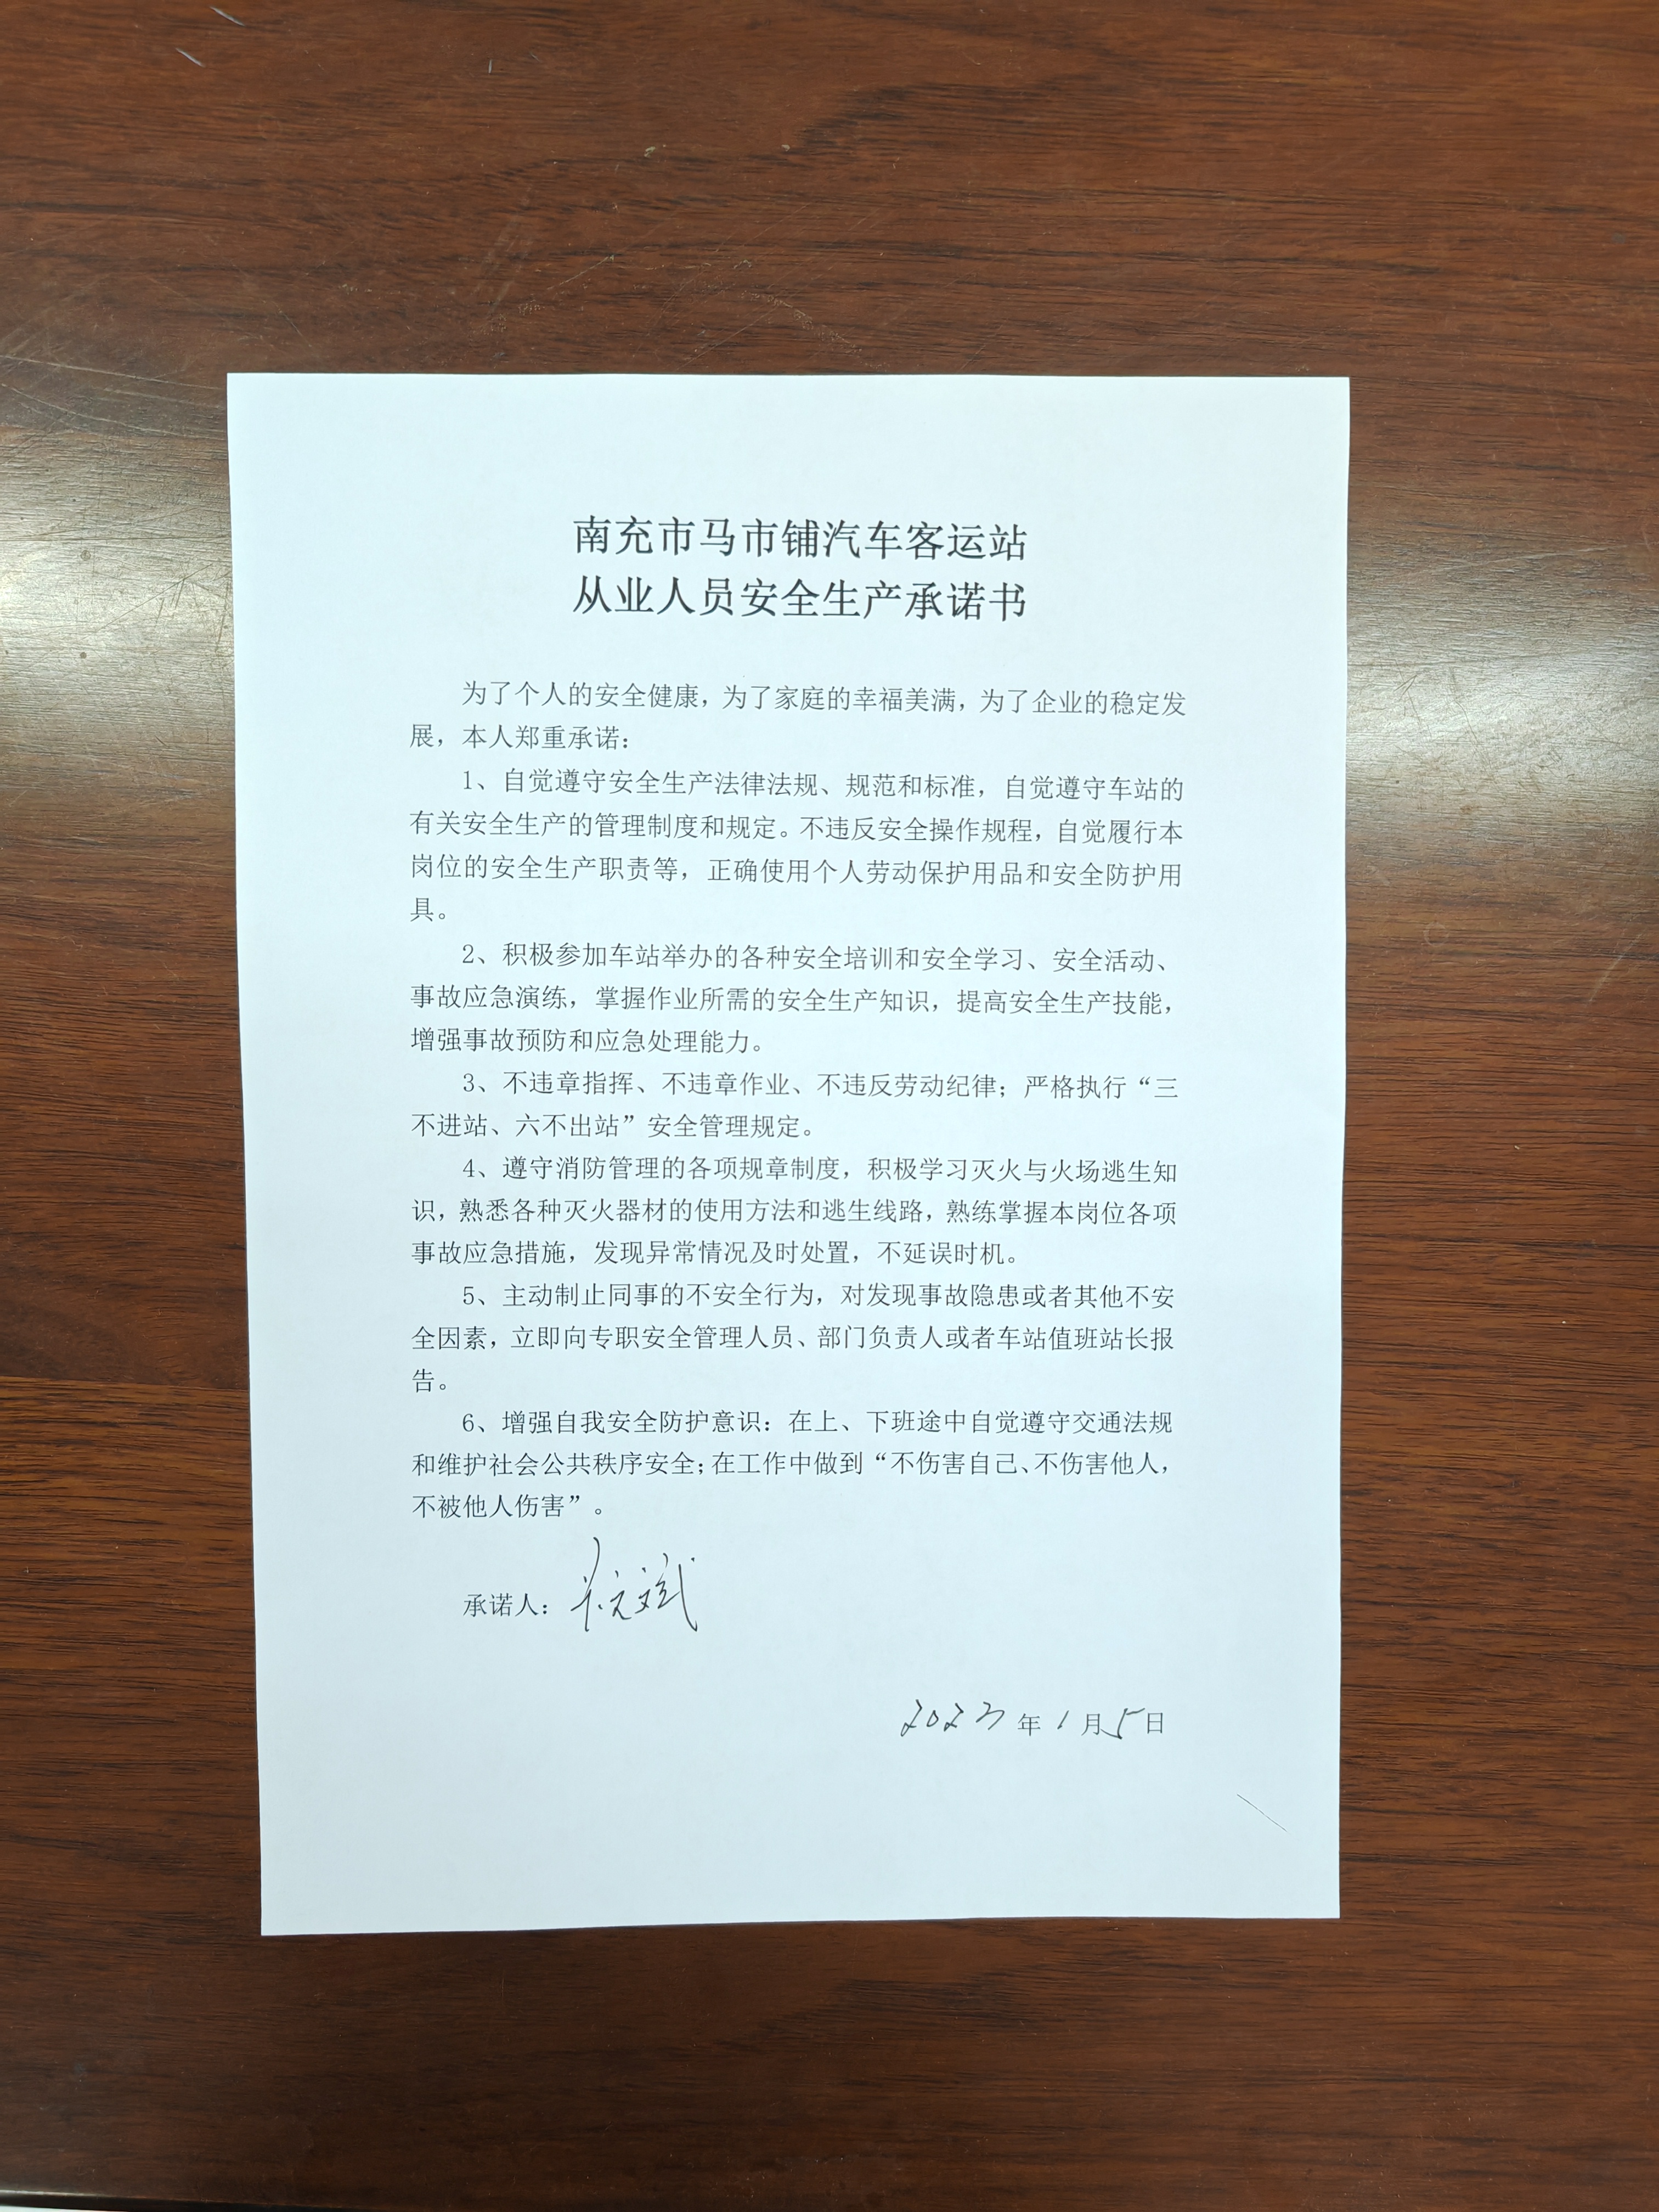 南充市马市铺汽车客运站
从业人员安全生产承诺书
为了个人的安全健康，为了家庭的幸福美满，为了企业的稳定发
展，本人郑重承诺：
1、自觉遵守安全生产法律法规、规范和标准，自觉遵守车站的
有关安全生产的管理制度和规定。不违反安全操作规程，自觉履行本
岗位的安全生产职责等，正确使用个人劳动保护用品和安全防护用
具。
2、积极参加车站举办的各种安全培训和安全学习、安全活动、
事故应急演练，掌握作业所需的安全生产知识，提高安全生产技能，
增强事故预防和应急处理能力。
3、不违章指挥、不违章作业、不违反劳动纪律；严格执行“三
不进站、六不出站”安全管理规定。
4、遵守消防管理的各项规章制度，积极学习灭火与火场逃生知
识，熟悉各种灭火器材的使用方法和逃生线路，熟练掌握本岗位各项
事故应急措施，发现异常情况及时处置，不延误时机。
5、主动制止同事的不安全行为，对发现事故隐患或者其他不安
全因素，立即向专职安全管理人员、部门负责人或者车站值班站长报
告。
6、增强自我安全防护意识：在上、下班途中自觉遵守交通法规
和维护社会公共秩序安全；在工作中做到“不伤害自己、不伤害他人，
不被他人伤害”。
承诺人：
2023年1月5日